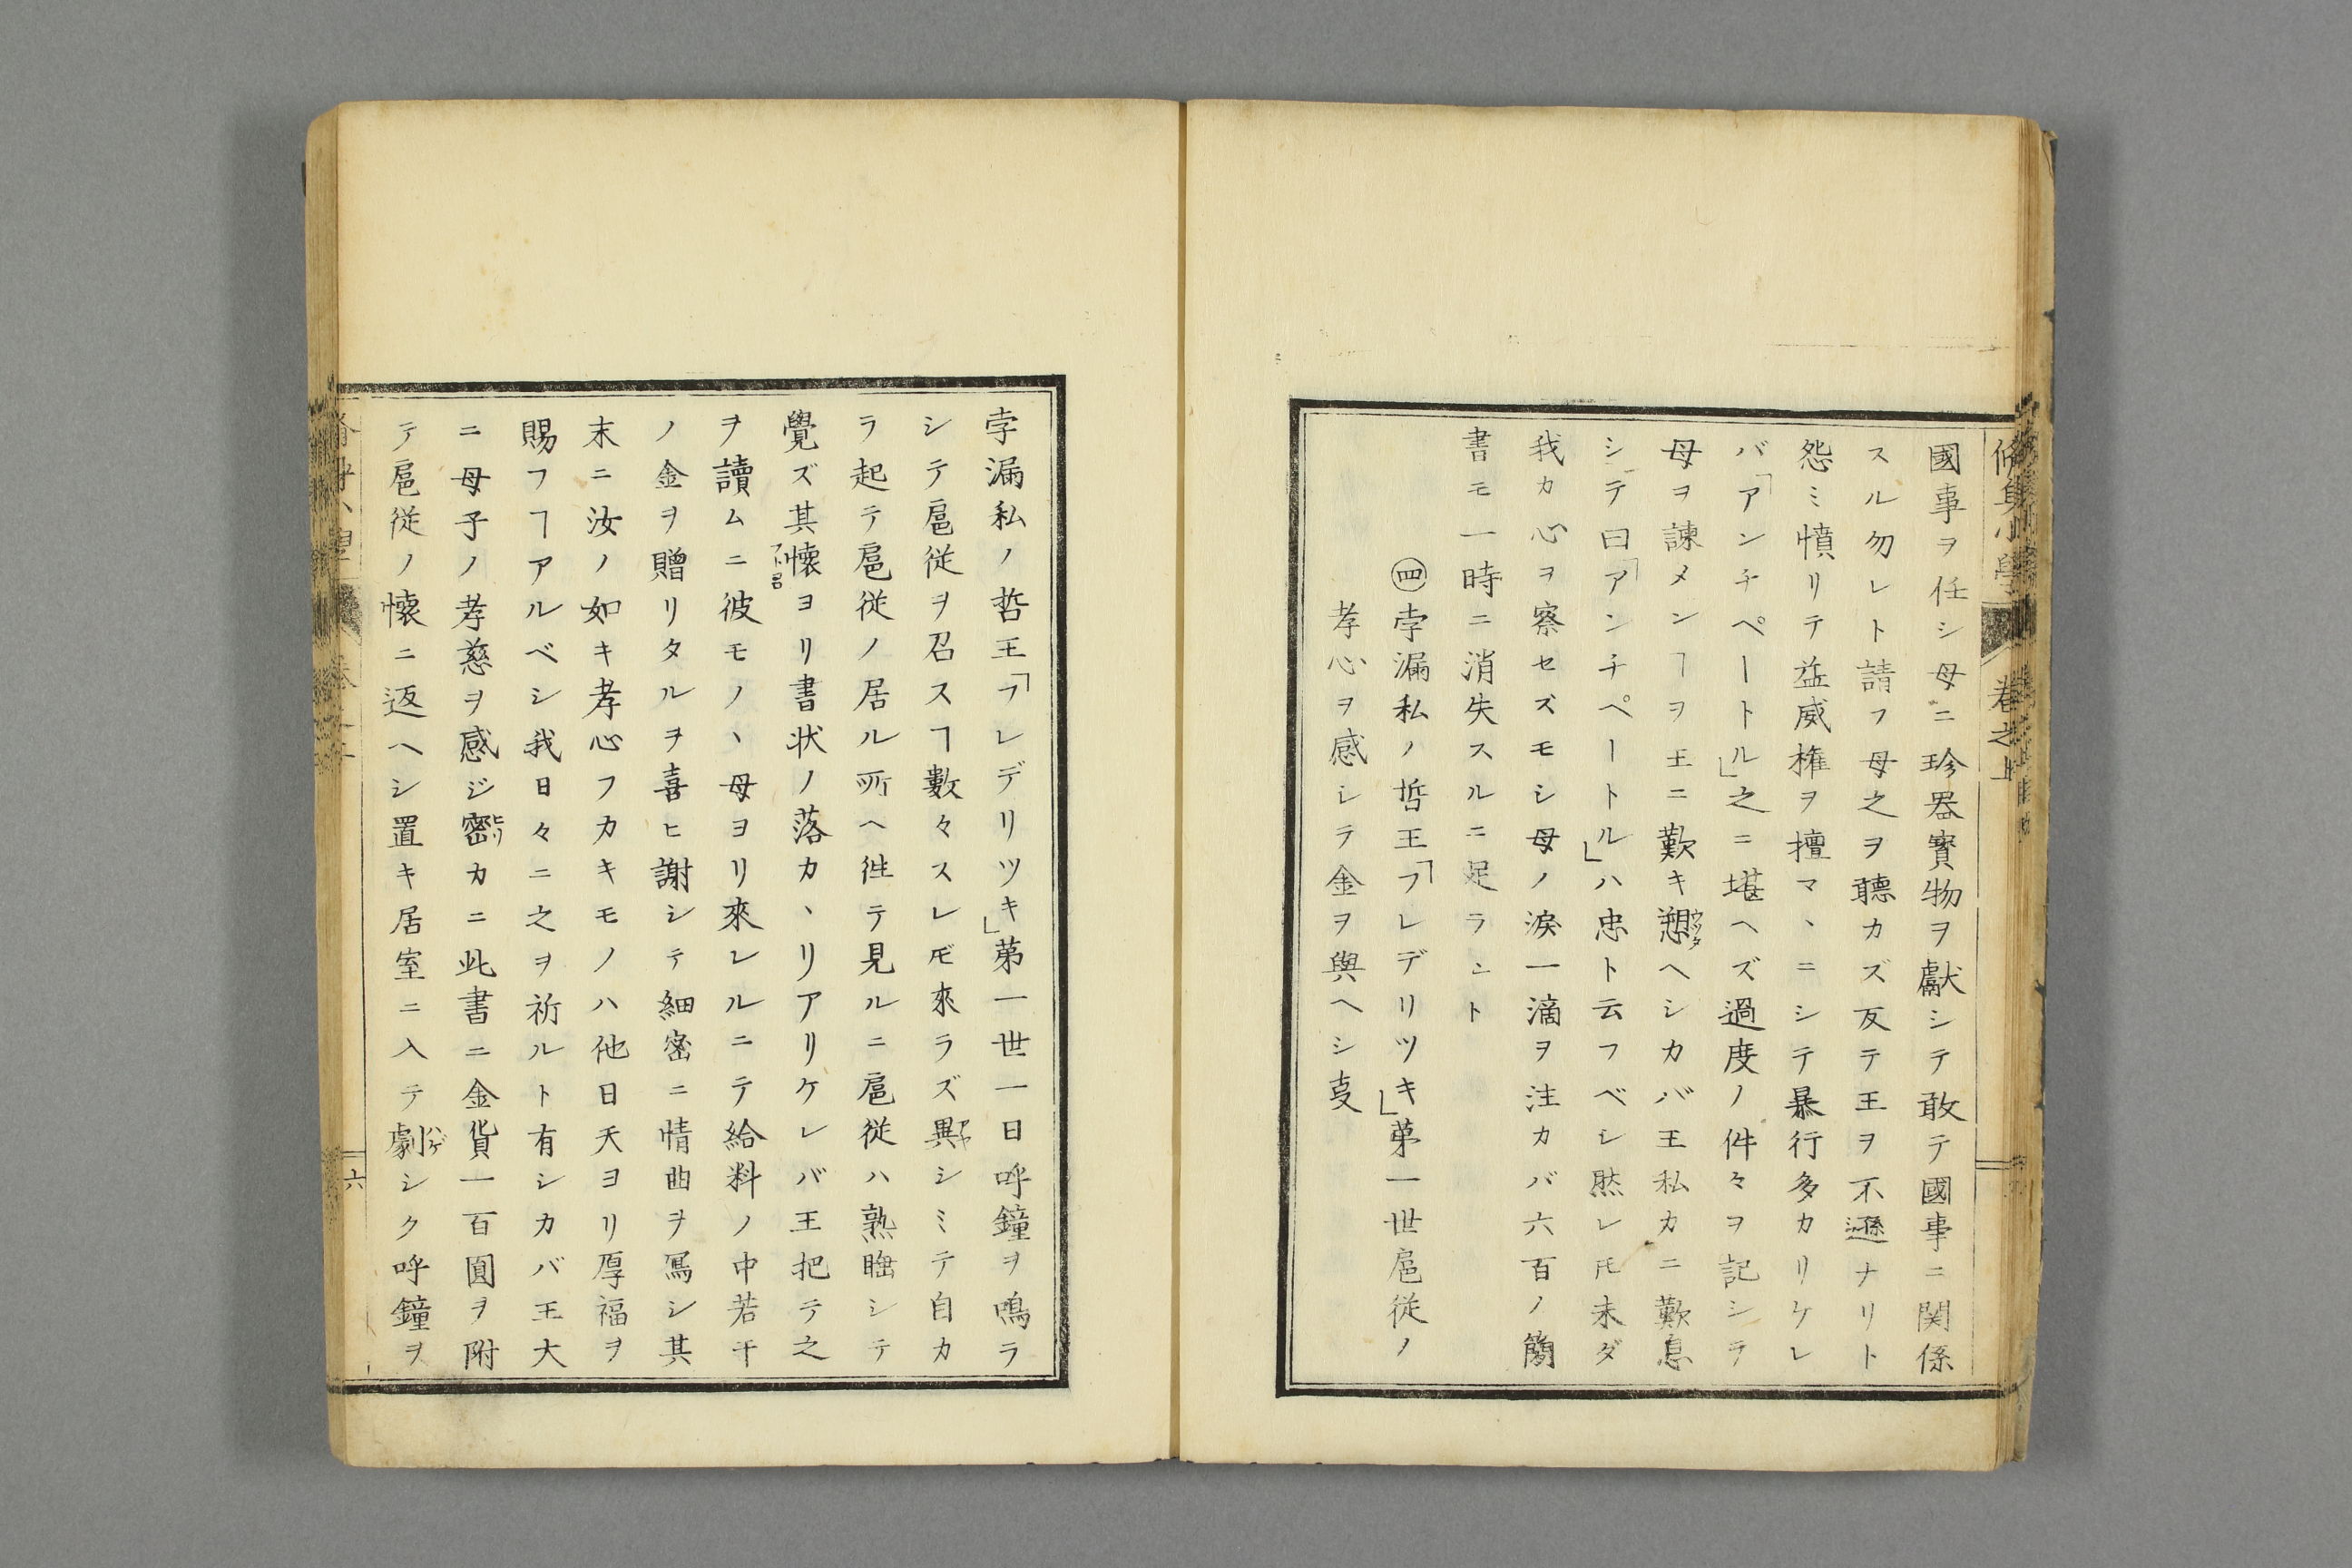 脩身小學 卷之上
國事ヲ任シ母ニ珍器寳物ヲ獻シテ敢テ國事ニ関係
スル勿レト請フ母之ヲ聴カズ反テ王ヲ不遜ナリト
怨ミ憤リテ益威権ヲ擅マヽニシテ暴行多カリケレ
バ「アンチペートル」之ニ堪ヘズ過度ノ件々ヲ記シテ
母ヲ諫メンヿヲ王ニ歎キ愬ウツタヘシカバ王私カニ歎息
シテ曰「アンチペートル」ハ忠ト云フベシ然レ𪜈未ダ
我カ心ヲ察セズモシ母ノ涙一滴ヲ注カバ六百ノ簡
書モ一時ニ消失スルニ足ラント
㊃孛漏私ノ哲王「フレデリツキ」第一世扈従ノ
孝心ヲ感シテ金ヲ與ヘシ㕝
孛漏私ノ哲王「フレデリツキ」第一世一日呼鐘ヲ鳴ラ
シテ扈従ヲ召スヿ數々スレ𪜈來ラズ異アヤシミテ自カ
ラ起テ扈従ノ居ル所ヘ徃テ見ルニ扈従ハ熟睡シテ
覺ズ其懐ヨリ書状ノ落カヽリアリケレバ王把テ之
ヲ讀ムニ彼モノヽ母ヨリ來レルニテ給料ノ中若干
ノ金ヲ贈リタルヲ喜ヒ謝シテ細密ニ情曲ヲ寫シ其
末ニ汝ノ如キ孝心フカキモノハ他日天ヨリ厚福ヲ
賜フヿアルベシ我日々ニ之ヲ祈ルト有シカバ王大
ニ母子ノ孝慈ヲ感ジ密ヒソカニ此書ニ金貨一百圓ヲ附
テ扈従ノ懐ニ返ヘシ置キ居室ニ入テ劇ハゲシク呼鐘ヲ
六